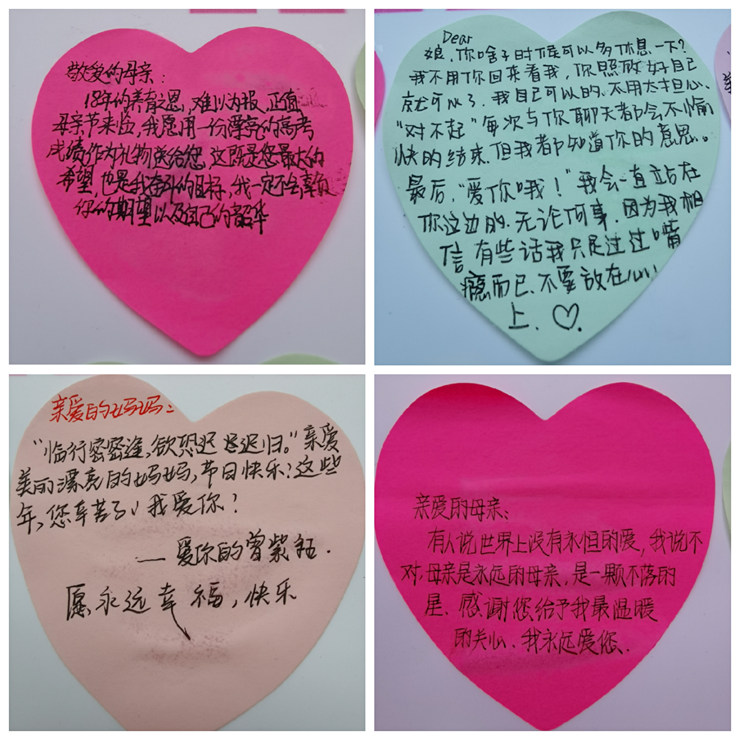 敬爱的母亲：
18年的养育之恩，难以为报，正值
母亲节来临，我愿用一份漂亮的高考
成绩作为礼物送给您，这既是您最大的
希望，也是我奋斗的目标，我一定不会辜负
你的期望以及自己的韶华
Dear
娘，你啥子时候可以多休息一下？
我不用你回来看我，你照顾好自己
就可以了，我自己可以的，不用太担心、
“对不起”每次与你聊天都会不愉
快的结束，但我都知道你的意思。
最后，“爱你哦！”我会一直站在
你这边的，无论何事，因为我相
信有些话我只是过过嘴
瘾而已、不要放在心
上．♡．
亲爱的妈妈：
“临行密密逢，欲恐迟迟归。”亲爱
美丽漂亮的妈妈，节日快乐！这些
年，您辛苦了！我爱你！
——爱你的曾紫钰．
愿永远幸福，快乐
亲爱的母亲：
有人说世界上没有永恒的爱，我说不
对，母亲是永远的母亲，是一颗不落的
星．感谢您给予我最温暖
的关心．我永远爱您．